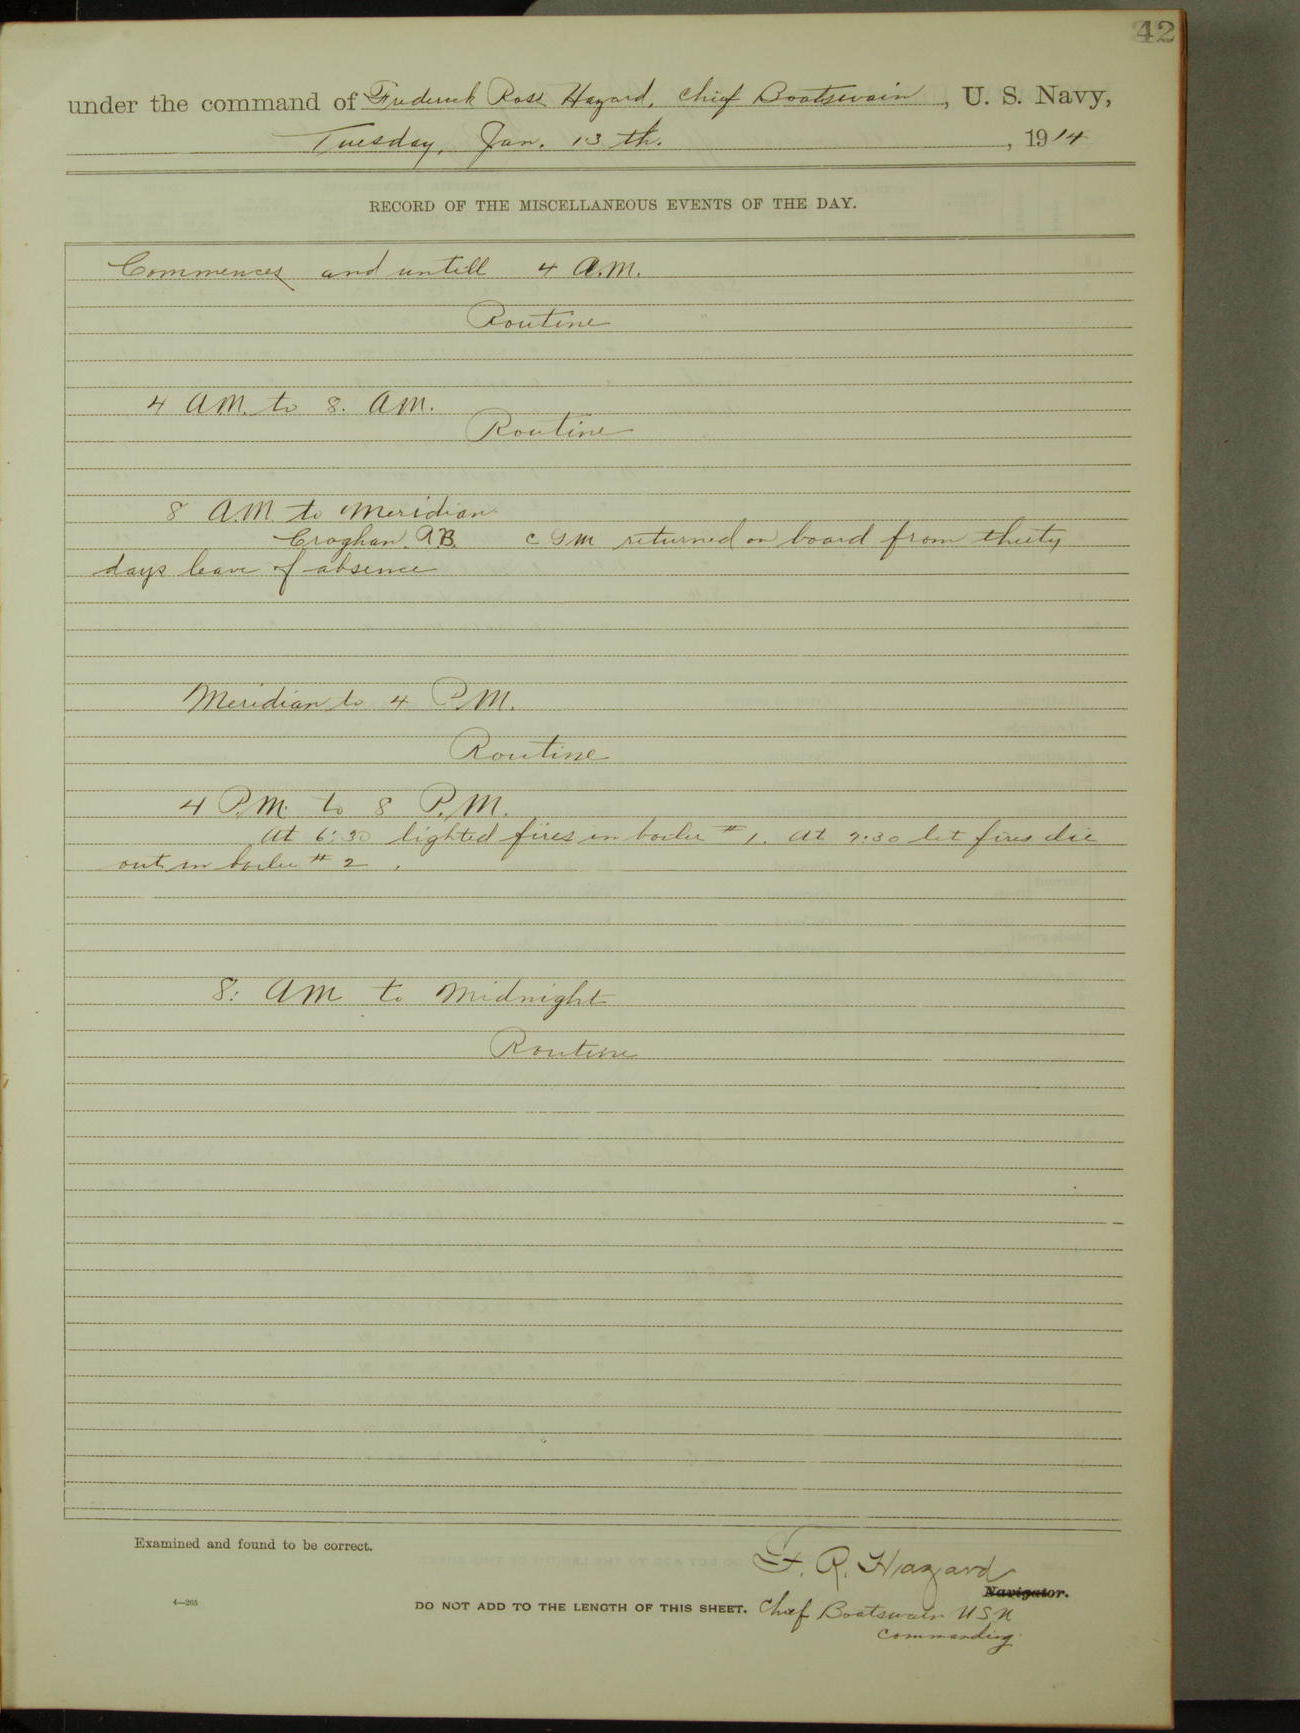 42
under the command of Frederick Ross Hazard, Chief Boatswain, U. S. Navy,
Tuesday, Jan. 13 th. , 1914
RECORD OF THE MISCELLANEOUS EVENTS OF THE DAY.
Commences and untill 4 A.M.
Routine
4 AM. to 8. AM.
Routine
8 A.M. to Meridian
Croghan. A.B. C G M returned on board from thirty
days leave of absence
Meridian to 4 P.M.
Routine
4 P.M. to 8 P.M.
At 6:30 lighted fires in boiler # 1. At 7:30 let fires die
out in boiler # 2 .
8: AM to Midnight
Routine
Examined and found to be correct.
F. R. Hazard
Navigator.
4—265
DO NOT ADD TO THE LENGTH OF THIS SHEET. Chief Boatswain U S N
Commanding.